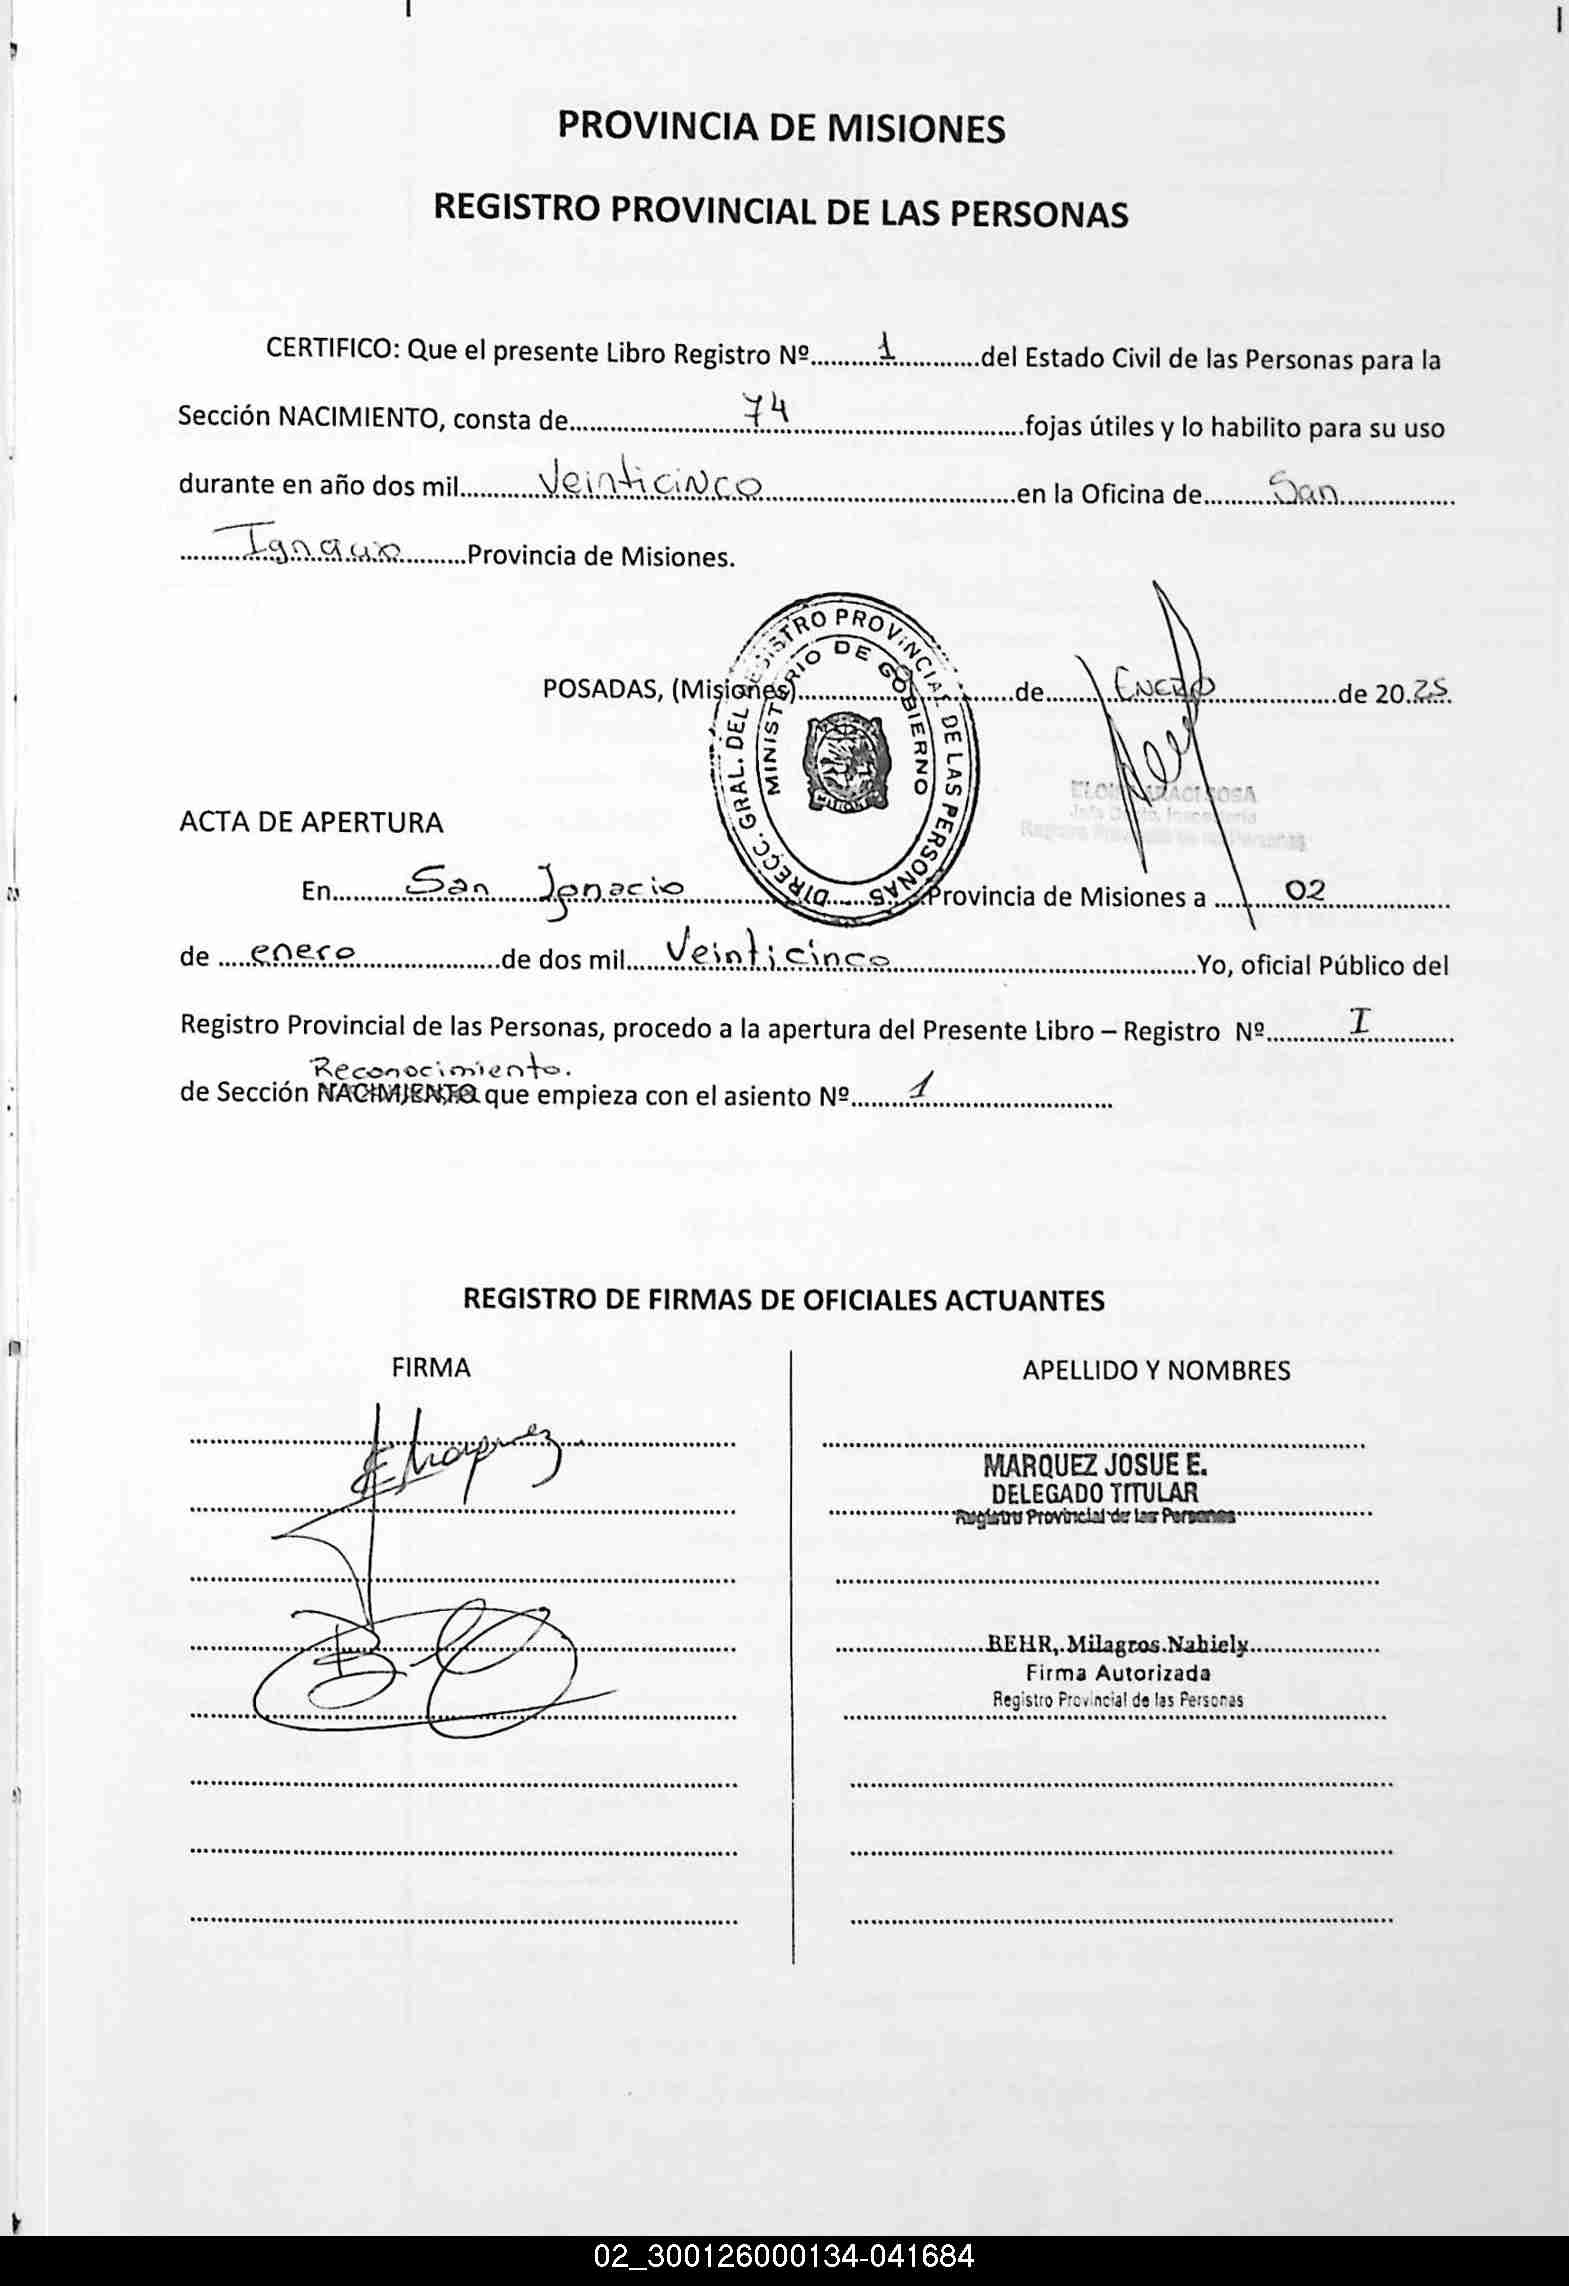 PROVINCIA DE MISIONES
REGISTRO PROVINCIAL DE LAS PERSONAS
CERTIFICO: Que el presente Libro Registro Nº..........1............del Estado Civil de las Personas para la
Sección NACIMIENTO, consta de..........74..........fojas útiles y lo habilito para su uso
durante en año dos mil..........Veinticinco..........en la Oficina de..........San..........
..........Ignacio..........Provincia de Misiones.
DIRECC. GRAL. DEL REGISTRO PROVINCIAL DE LAS PERSONAS
MINISTERIO DE GOBIERNO
POSADAS, (Misiones)..........de..........Enero..........de 20.25.
SOSA
ACTA DE APERTURA
En..........San Ignacio..........Provincia de Misiones a ..........02..........
de .....enero..........de dos mil.....Veinticinco..........Yo, oficial Público del
Registro Provincial de las Personas, procedo a la apertura del Presente Libro – Registro Nº..........I..........
Reconocimiento.
de Sección NACIMIENTO que empieza con el asiento Nº..........1..........
REGISTRO DE FIRMAS DE OFICIALES ACTUANTES
FIRMA
APELLIDO Y NOMBRES
MARQUEZ JOSUE E.
DELEGADO TITULAR
Registro Provincial de las Personas
BEHR, Milagros Nahiely
Firma Autorizada
Registro Provincial de las Personas
02_300126000134-041684